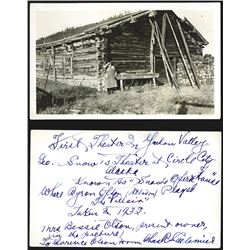 First Theater In Yukon Valley
Geo. Snow's Theater at Circle City
Alaska
Known As "Snow's Opera House"
Where Byron Olson Played
The Villain
Taken In 1932.
Mrs Bessie Olson, present owner
in the picture
To Clarence Olson from